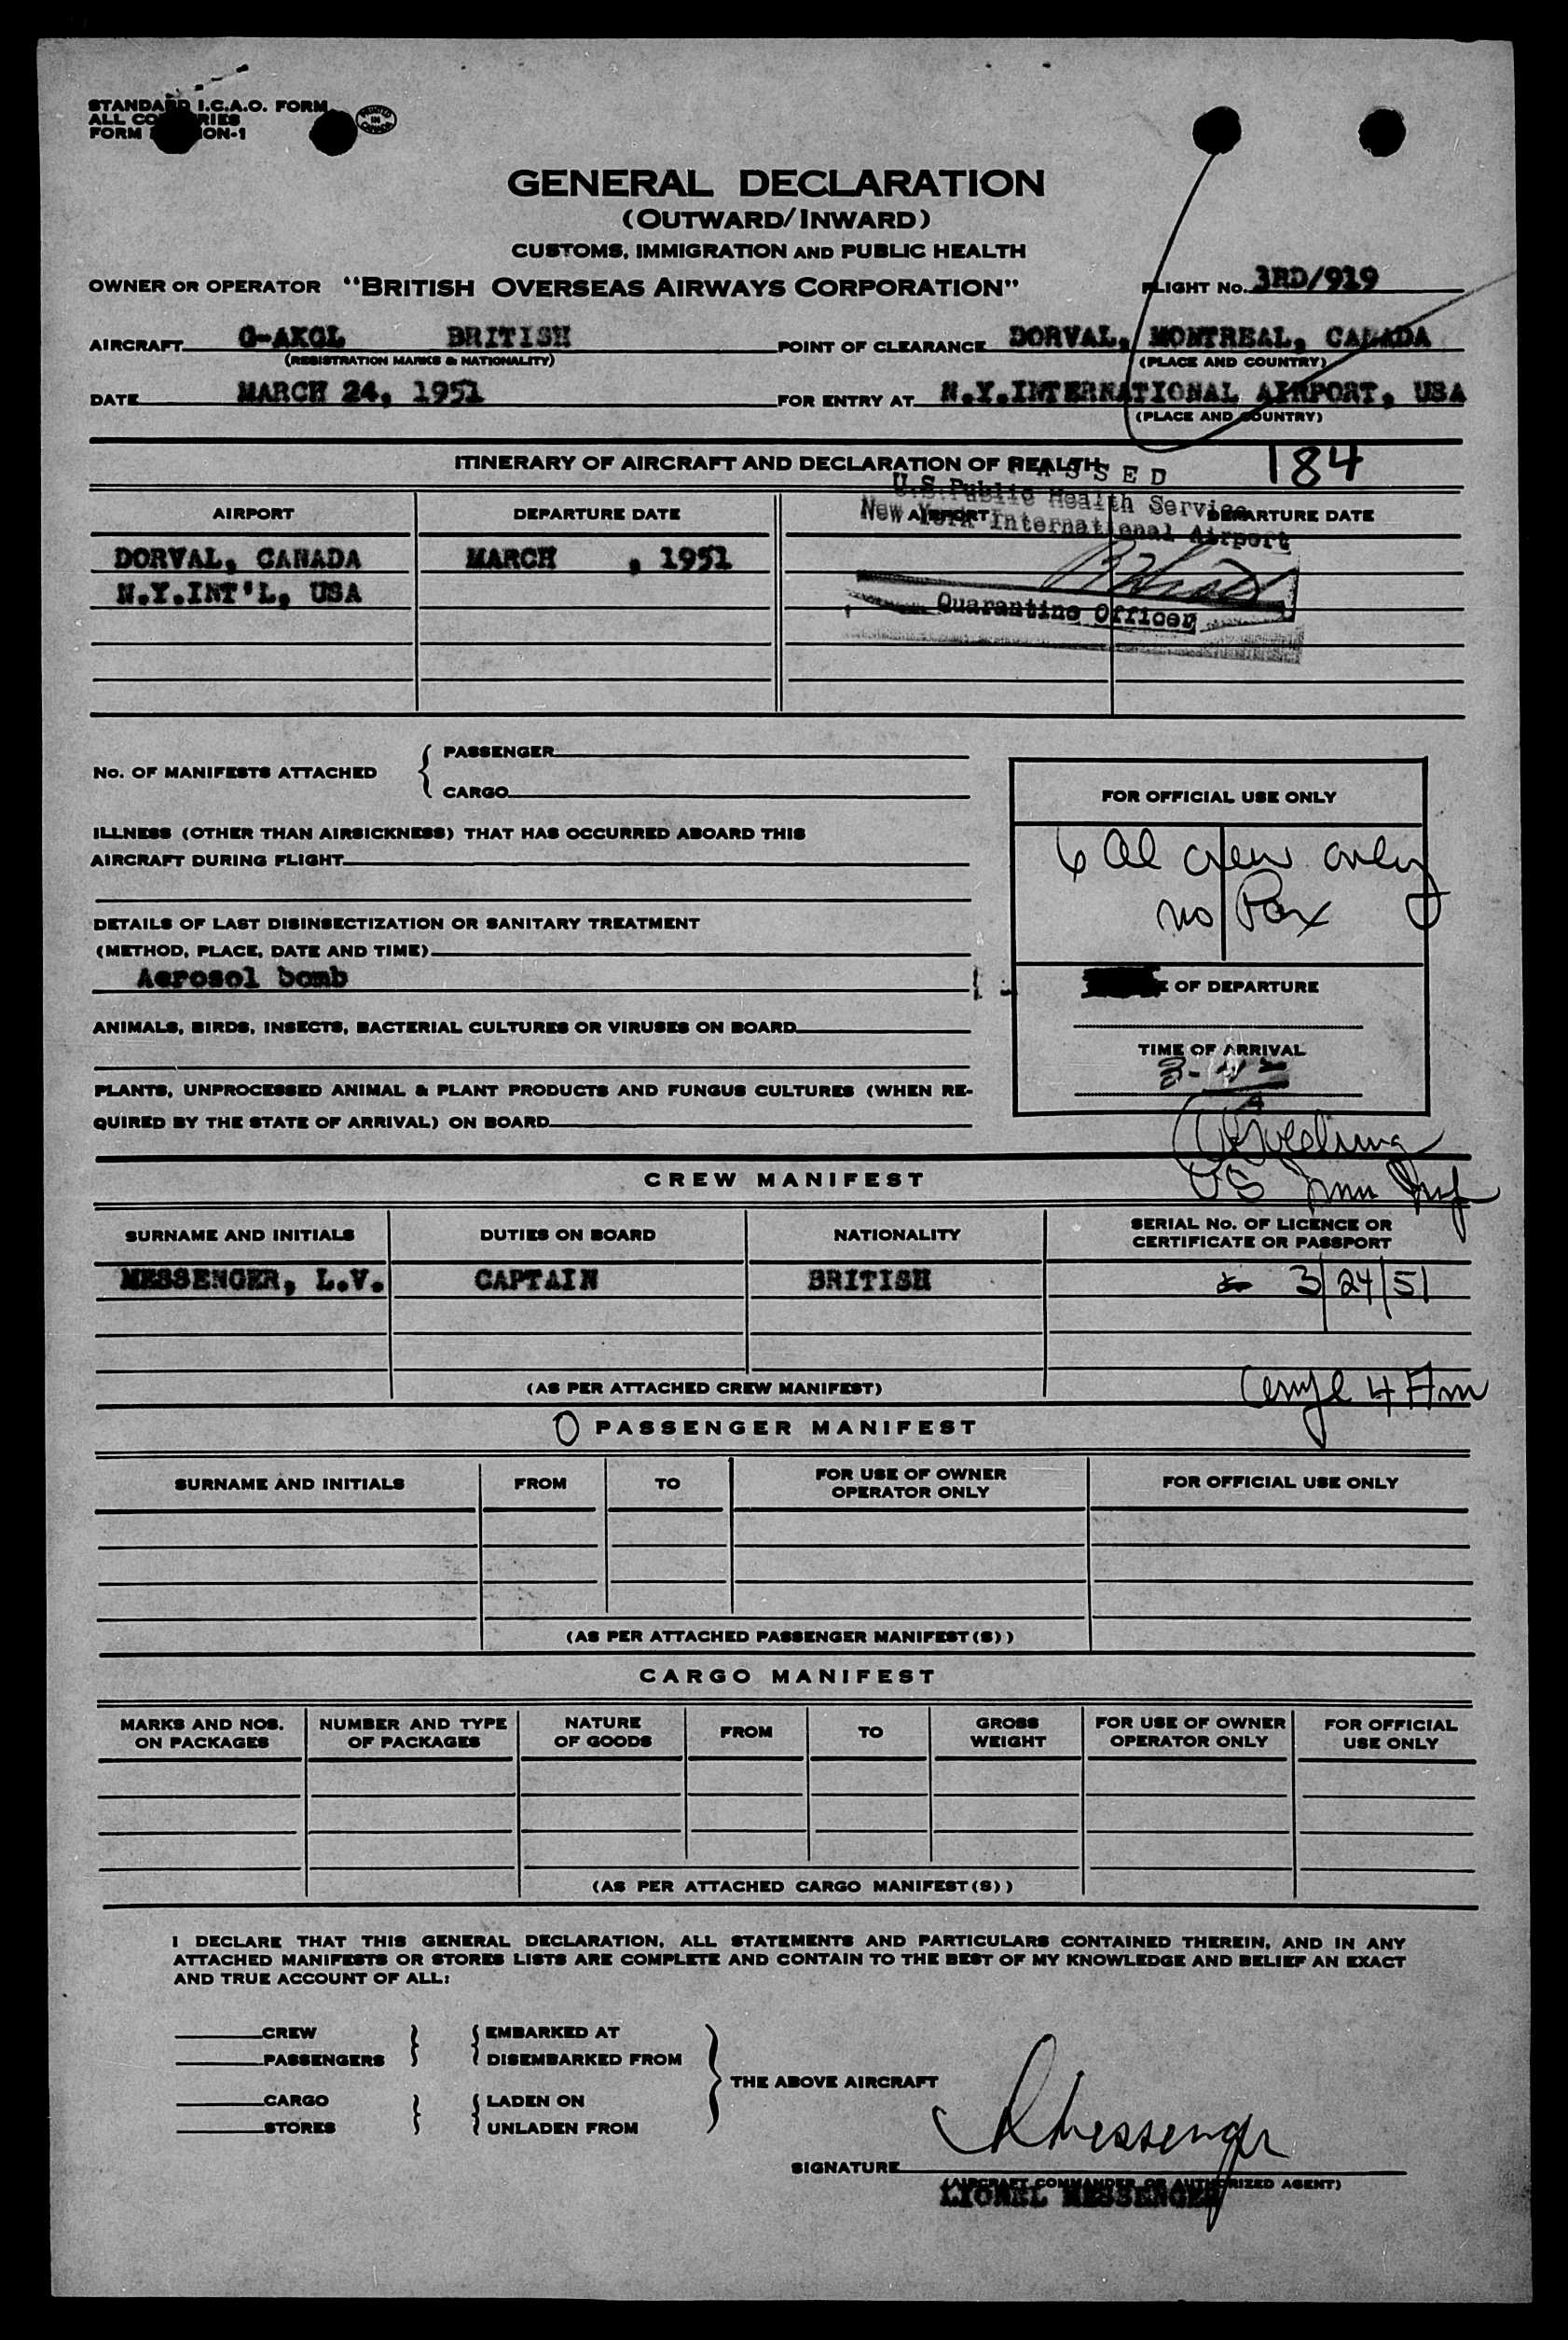 STANDARD I.C.A.O. FORM
ALL COUNTRIES
FORM ON-1
PRINTED IN CANADA
GENERAL DECLARATION
(OUTWARD/INWARD)
CUSTOMS, IMMIGRATION AND PUBLIC HEALTH
OWNER OR OPERATOR "BRITISH OVERSEAS AIRWAYS CORPORATION" FLIGHT No. 3RD/919
AIRCRAFT G-AKGL BRITISH POINT OF CLEARANCE DORVAL, MONTREAL, CANADA
(REGISTRATION MARKS & NATIONALITY) (PLACE AND COUNTRY)
DATE MARCH 24, 1951 FOR ENTRY AT N.Y.INTERNATIONAL AIRPORT, USA
(PLACE AND COUNTRY)
184
ITINERARY OF AIRCRAFT AND DECLARATION OF HEALTH
PASSED
U.S. Public Health Service
New York International Airport
Quarantine Officer
AIRPORT DEPARTURE DATE AIRPORT DEPARTURE DATE
DORVAL, CANADA MARCH , 1951
N.Y.INT'L, USA
No. OF MANIFESTS ATTACHED { PASSENGER
CARGO
ILLNESS (OTHER THAN AIRSICKNESS) THAT HAS OCCURRED ABOARD THIS
AIRCRAFT DURING FLIGHT
DETAILS OF LAST DISINSECTIZATION OR SANITARY TREATMENT
(METHOD, PLACE, DATE AND TIME)
Aerosol bomb
ANIMALS, BIRDS, INSECTS, BACTERIAL CULTURES OR VIRUSES ON BOARD
PLANTS, UNPROCESSED ANIMAL & PLANT PRODUCTS AND FUNGUS CULTURES (WHEN RE-
QUIRED BY THE STATE OF ARRIVAL) ON BOARD
FOR OFFICIAL USE ONLY
6 al crew only
no Pax
OF DEPARTURE
TIME OF ARRIVAL
US Imm Insp
CREW MANIFEST
SURNAME AND INITIALS DUTIES ON BOARD NATIONALITY SERIAL No. OF LICENCE OR
CERTIFICATE OR PASSPORT
MESSENGER, L.V. CAPTAIN BRITISH 3/24/51
(AS PER ATTACHED CREW MANIFEST)
4 Am
0 PASSENGER MANIFEST
SURNAME AND INITIALS FROM TO FOR USE OF OWNER
OPERATOR ONLY FOR OFFICIAL USE ONLY
(AS PER ATTACHED PASSENGER MANIFEST(S))
CARGO MANIFEST
MARKS AND NOS.
ON PACKAGES NUMBER AND TYPE
OF PACKAGES NATURE
OF GOODS FROM TO GROSS
WEIGHT FOR USE OF OWNER
OPERATOR ONLY FOR OFFICIAL
USE ONLY
(AS PER ATTACHED CARGO MANIFEST(S))
I DECLARE THAT THIS GENERAL DECLARATION, ALL STATEMENTS AND PARTICULARS CONTAINED THEREIN, AND IN ANY
ATTACHED MANIFESTS OR STORES LISTS ARE COMPLETE AND CONTAIN TO THE BEST OF MY KNOWLEDGE AND BELIEF AN EXACT
AND TRUE ACCOUNT OF ALL:
CREW } { EMBARKED AT
PASSENGERS } { DISEMBARKED FROM
THE ABOVE AIRCRAFT
CARGO } { LADEN ON
STORES } { UNLADEN FROM
SIGNATURE L Messenger
(AIRCRAFT COMMANDER OR AUTHORIZED AGENT)
LIONEL MESSENGER